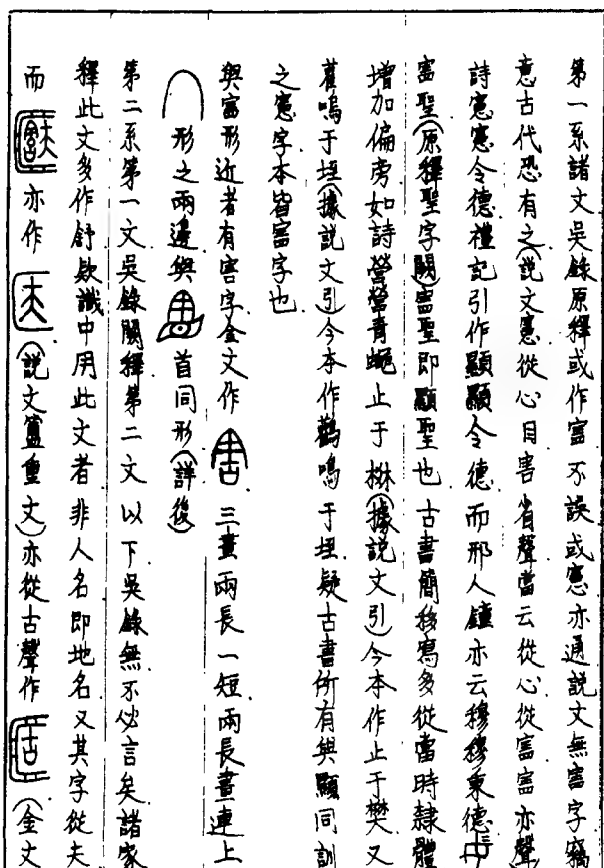 第一系諸文吳錄原釋或作害不誤或憲亦通說文無害字竊
意古代恐有之(說文憲從心目害省聲當云從心從害害亦聲)
詩憲憲令德禮記引作顯顯令德而邢人鐘亦云穆穆秉德
害聖(原釋聖字闕)害聖即顯聖也古書簡移寫多從當時隸體
增加偏旁如詩營營青蠅止于棥(據說文引)今本作止于樊又
雚鳴于垤(據說文引)今本作鸛鳴于垤疑古書所有與顯同訓
之憲字本皆害字也
與害形近者有害字金文作 三畫兩長一短兩長畫連上
形之兩邊與 首同形(詳後)
第二系第一文吳錄闕釋第二文以下吳錄無不必言矣諸家
釋此文多作舒款識中用此文者非人名即地名又其字從夫
而 亦作 (說文簠重文)亦從古聲作 (金文